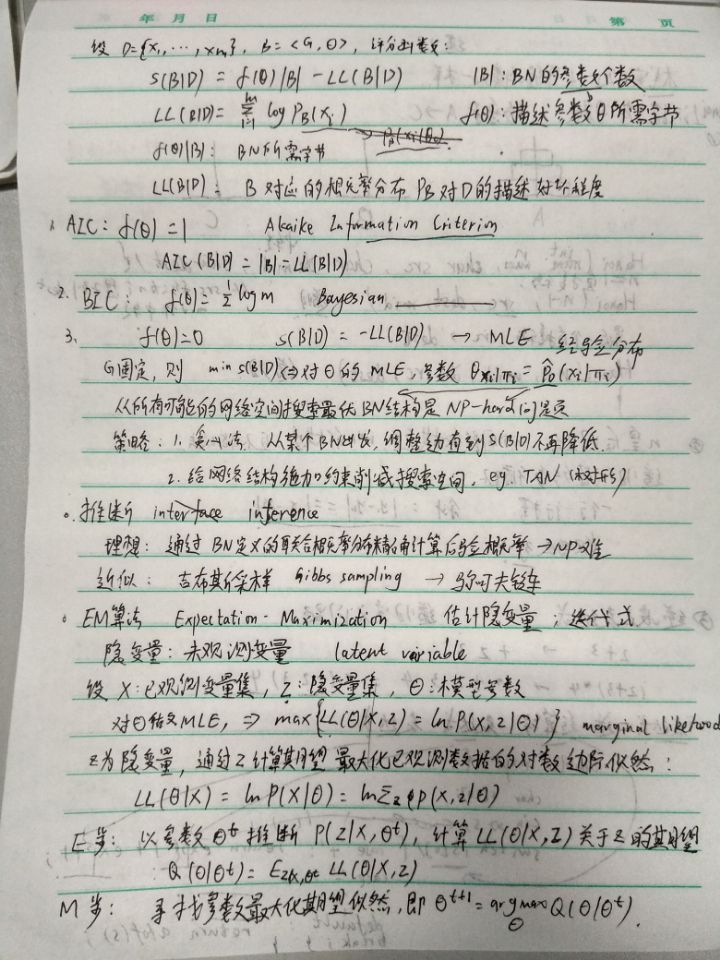 年 月 日 第 页
设 D={x₁, ⋯, xₘ}, B=<G, Θ>, 评分函数:
S(B|D) = f(θ)|B| - LL(B|D) |B|: BN的参数个数
LL(B|D) = Σᵢ₌₁ᵐ log P_B(xᵢ) f(θ): 描述参数θ所需字节
f(θ)|B|: BN所需字节
LL(B|D): B对应的概率分布 P_B 对D的描述好坏程度
1. AIC: f(θ)=1 Akaike Information Criterion
AIC(B|D) = |B| - LL(B|D)
2. BIC: f(θ)=½ log m Bayesian
3. f(θ)=0 S(B|D) = -LL(B|D) → MLE 经验分布
G固定, 则 min S(B|D) ⇔ 对Θ的MLE 参数 θ_{xᵢ|πᵢ} = P̂_D(xᵢ|πᵢ)
从所有可能的网络空间搜索最优BN结构是NP-hard问题
策略: 1. 贪心法. 从某个BN出发, 调整边直到S(B|D)不再降低
2. 给网络结构施加约束削减搜索空间, eg. TAN (树形)
。推断 interface inference
理想: 通过BN定义的联合概率分布精确计算后验概率 → NP难
近似: 吉布斯采样 Gibbs sampling → 马尔可夫链
。EM算法 Expectation-Maximization 估计隐变量; 迭代式
隐变量: 未观测变量 latent variable
设 X: 已观测变量集, Z: 隐变量集, Θ: 模型参数
对Θ做MLE, ⇒ max{LL(Θ|X,Z) = ln P(X,Z|Θ)} marginal likehood
Z为隐变量, 通过Z计算期望 最大化已观测数据的对数边际似然:
LL(Θ|X) = ln P(X|Θ) = ln Σ_Z P(X,Z|Θ)
E步: 以参数 Θᵗ 推断 P(Z|X,Θᵗ), 计算LL(Θ|X,Z)关于Z的期望
Q(Θ|Θᵗ) = E_{Z|X,Θᵗ} LL(Θ|X,Z)
M步: 寻找参数最大化期望似然, 即 Θᵗ⁺¹ = argmax_Θ Q(Θ|Θᵗ).